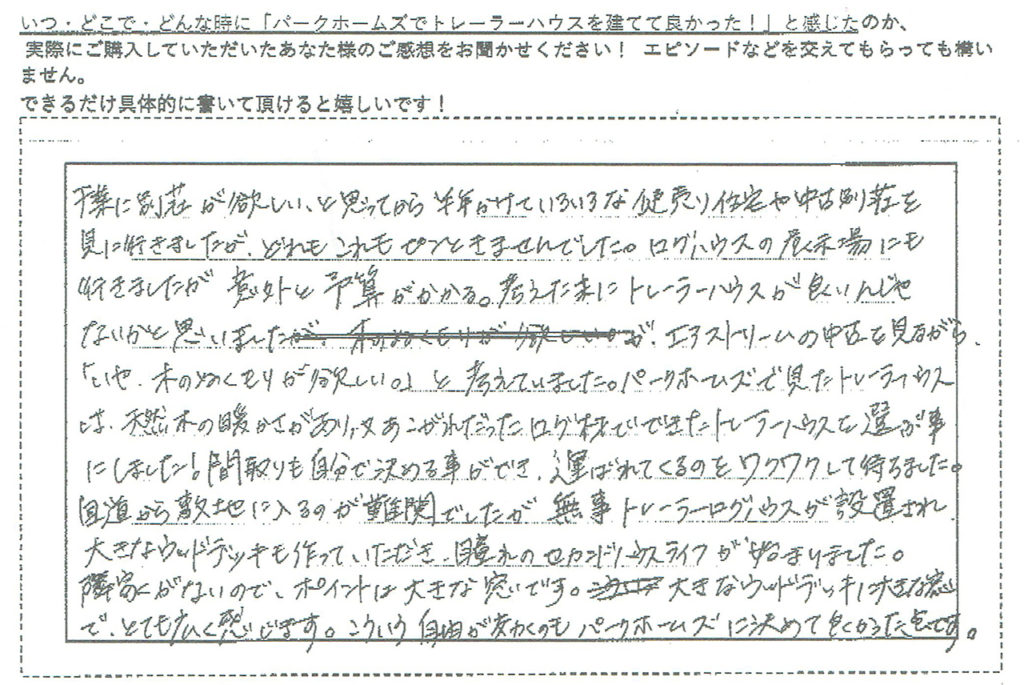 いつ・どこで・どんな時に「パークホームズでトレーラーハウスを建てて良かった！」と感じたのか、
実際にご購入していただいたあなた様のご感想をお聞かせください！ エピソードなどを交えてもらっても構い
ません。
できるだけ具体的に書いて頂けると嬉しいです！
に別荘が欲しい、と思ってから半年かけていろいろな建売り住宅や中古別荘を
見に行きましたが、どれもこれもピンときませんでした。ログハウスの展示場にも
行きましたが意外と予算がかかる。考えた末にトレーラーハウスが良いんじゃ
ないかと思いましたが、木のぬくもりが欲しいが、エアストリームの中古を見ながら、
「いや、木のぬくもりが欲しい。」と考えていました。パークホームズで見たトレーラーハウス
は、天然木の暖かさがあり、又あこがれだったログ材でできたトレーラーハウスを選ぶ事
にしました！間取りも自分で決める事ができ、運ばれてくるのをワクワクして待ちました。
国道から敷地に入るのが難関でしたが無事トレーラーログハウスが設置され
大きなウッドデッキも作っていただき、憧れのセカンドハウスライフが始まりました。
隣家がないので、ポイントは大きな窓です。大きなウッドデッキに大きな窓
で、とても広く感じます。こういう自由が効くのもパークホームズに決めて良かった点です。